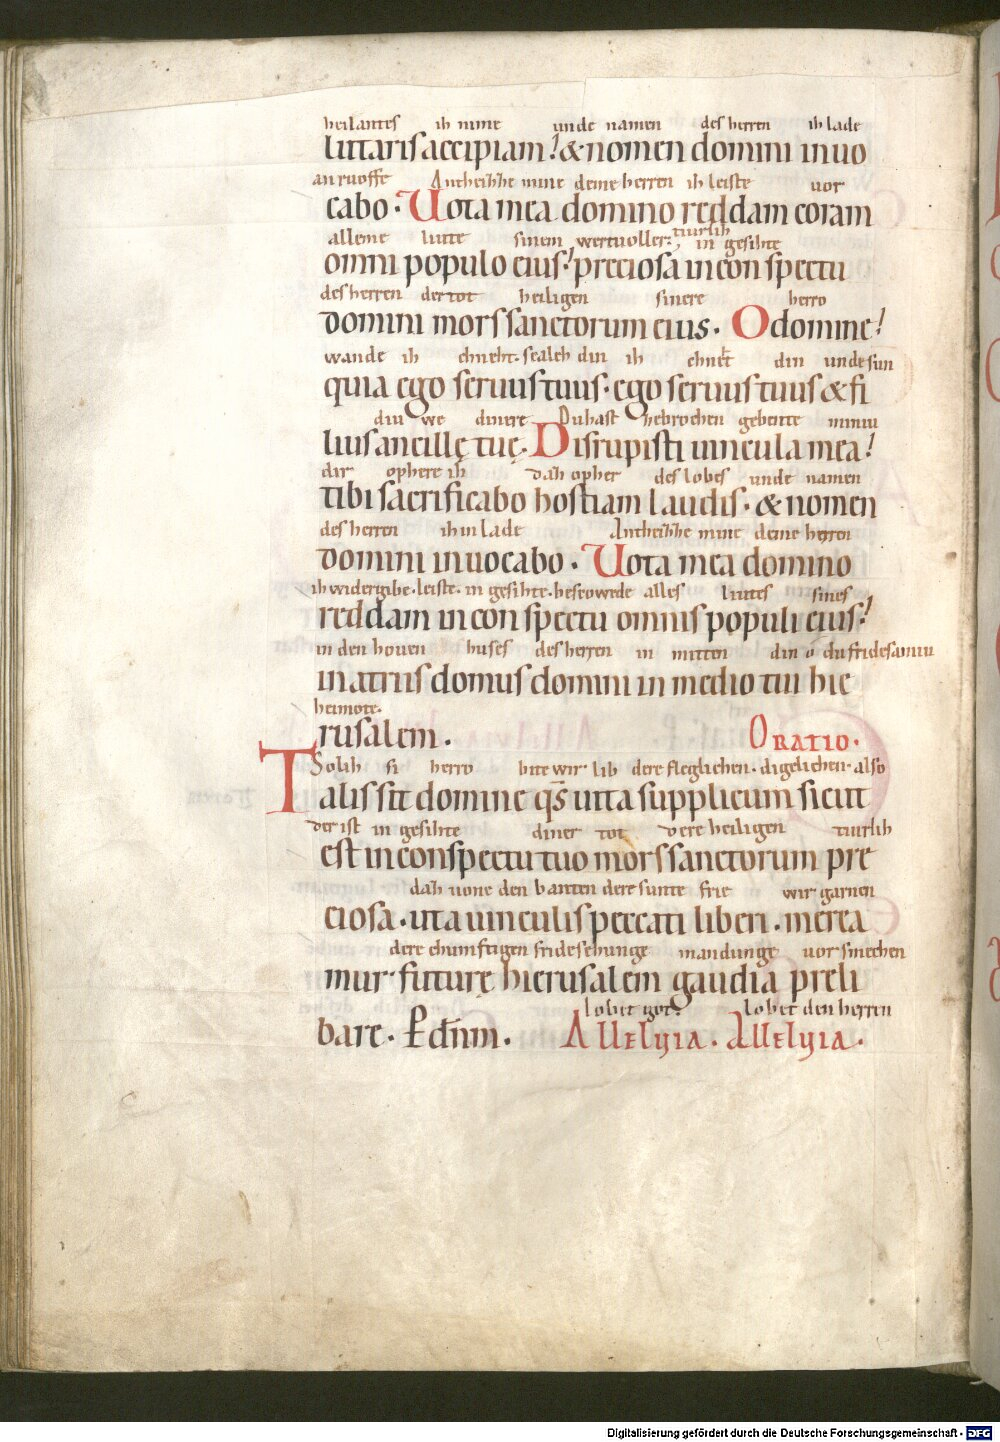 heilantes ih nime unde namen des herren ih lade
luttaris accipiam! & nomen domini inuo
anruoffe Antheihhe mine deme herren ih leiste uor
cabo. Uota mea domino reddam coram
alleme liute sinem wertuoller: tiurlih in gesihte
omni populo eius! preciosa in conspectu
des herren der tot heiligen sinere herro
domini mors sanctorum eius. O domine!
wande ih chneht. scalch din ih chneht din unde sun
quia ego seruus tuus. ego seruus tuus & fi
diu we dinere Du hast zebrochen gebente miniu
lius ancillę tuę. Disrupisti uincula mea!
dir ophere ih daz opher des lobes unde namen
tibi sacrificabo hostiam laudis. & nomen
des herren ih in lade Antheihhe mine deme herren
domini inuocabo. Uota mea domino
ih widergibe. leiste. in gesihte. bescowede alles liutes sines
reddam in conspectu omnis populi eius!
in den houen huses des herren in mitten din o du fridesamiu
in atriis domus domini in medio tui hie
heimote.
rusalem. ORATIO.
Solih si herro bite wir lib dere fleglichen. digelichen. also
Talis sit domine qs uita supplicum sicut
der ist in gesihte diner tot dere heiligen tiurlih
est in conspectu tuo mors sanctorum pre
daz uone den banten dere sunte frie wir garnen
ciosa. ut a uinculis peccati liberi. merea
dere chumftigen frideschunge mandunge uor smechen
mur. futurę hierusalem gaudia preli
lobet got. lobet den herren
bare. P dnm. Alleluia. Alleluia.
Digitalisierung gefördert durch die Deutsche Forschungsgemeinschaft - DFG